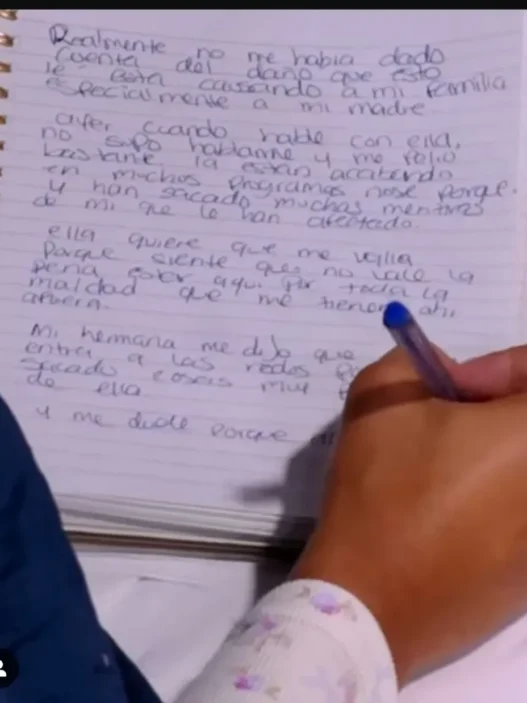 Realmente no me había dado
cuenta del daño que esto
le esta causando a mi familia
especialmente a mi madre
ayer cuando hable con ella,
no supo hablarme y me
bastante la estan acabando
en muchos programas nose porque.
y han sacado muchas mentiras
de mi que le han afectado.
ella quiere que me valla
Porque siente que no vale la
pena estar aqui por toda la
maldad que me tienen ahi
afuera.
Mi hermana me dijo que
entra a las redes
sacado cosas muy
de ella
y me duele porque